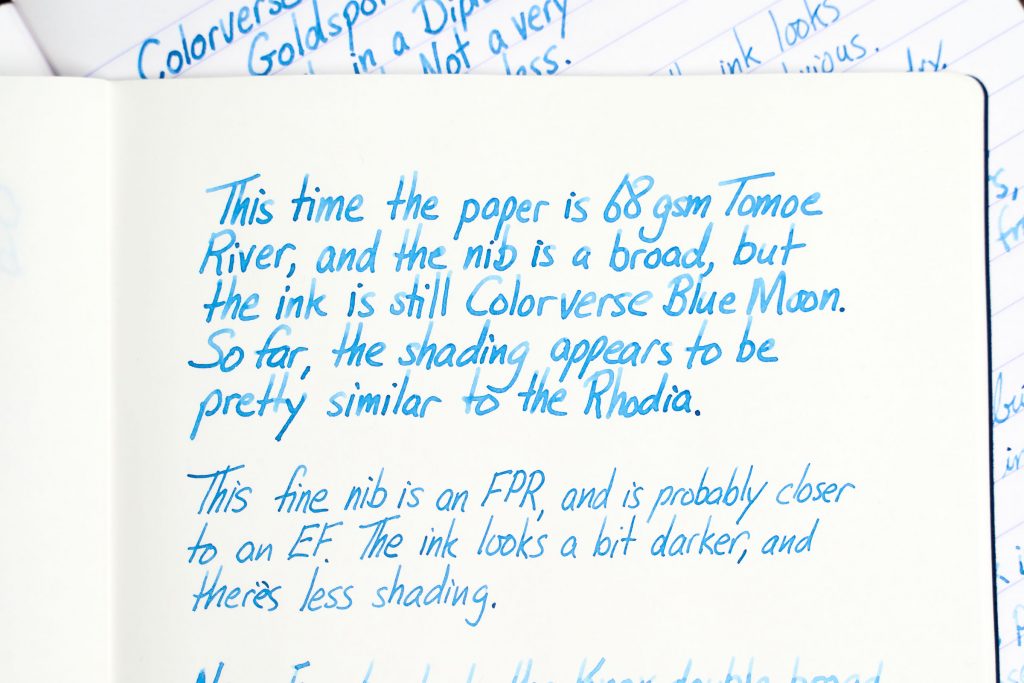 Colorverse
Goldspo
in a Dipl
Not a very
ess.
ink looks
vious.
dry.
This time the paper is 68 gsm Tomoe
River, and the nib is a broad, but
the ink is still Colorverse Blue Moon.
So far, the shading appears to be
pretty similar to the Rhodia.
This fine nib is an FPR, and is probably closer
to an EF. The ink looks a bit darker, and
there's less shading.
double broad